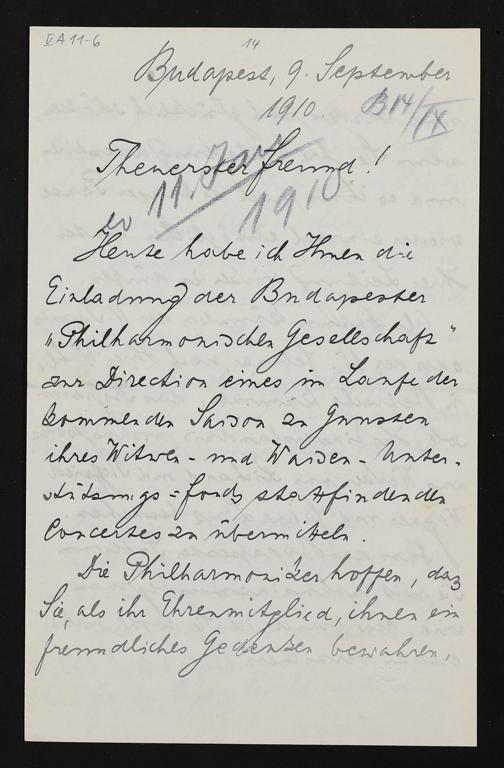 II A 11-6
14
Budapest, 9. September
1910.
B14/IX
Theuerster Freund!
11. Jan
1910
Heute habe ich Ihnen die
Einladung der Budapester
„Philharmonischen Gesellschaft"
zur Direction eines im Laufe der
kommenden Saison zu Gunsten
ihres Witwen- und Waisen-Unter-
stützungs=fonds stattfindenden
Concertes zu übermitteln.
Die Philharmoniker hoffen, dass
Sie, als ihr Ehrenmitglied, ihnen ein
freundliches Gedenken bewahren,